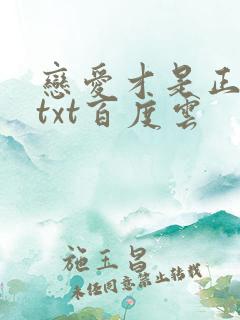 戀愛才是正
txt百度雲
施玉昌
未经同意禁止转载